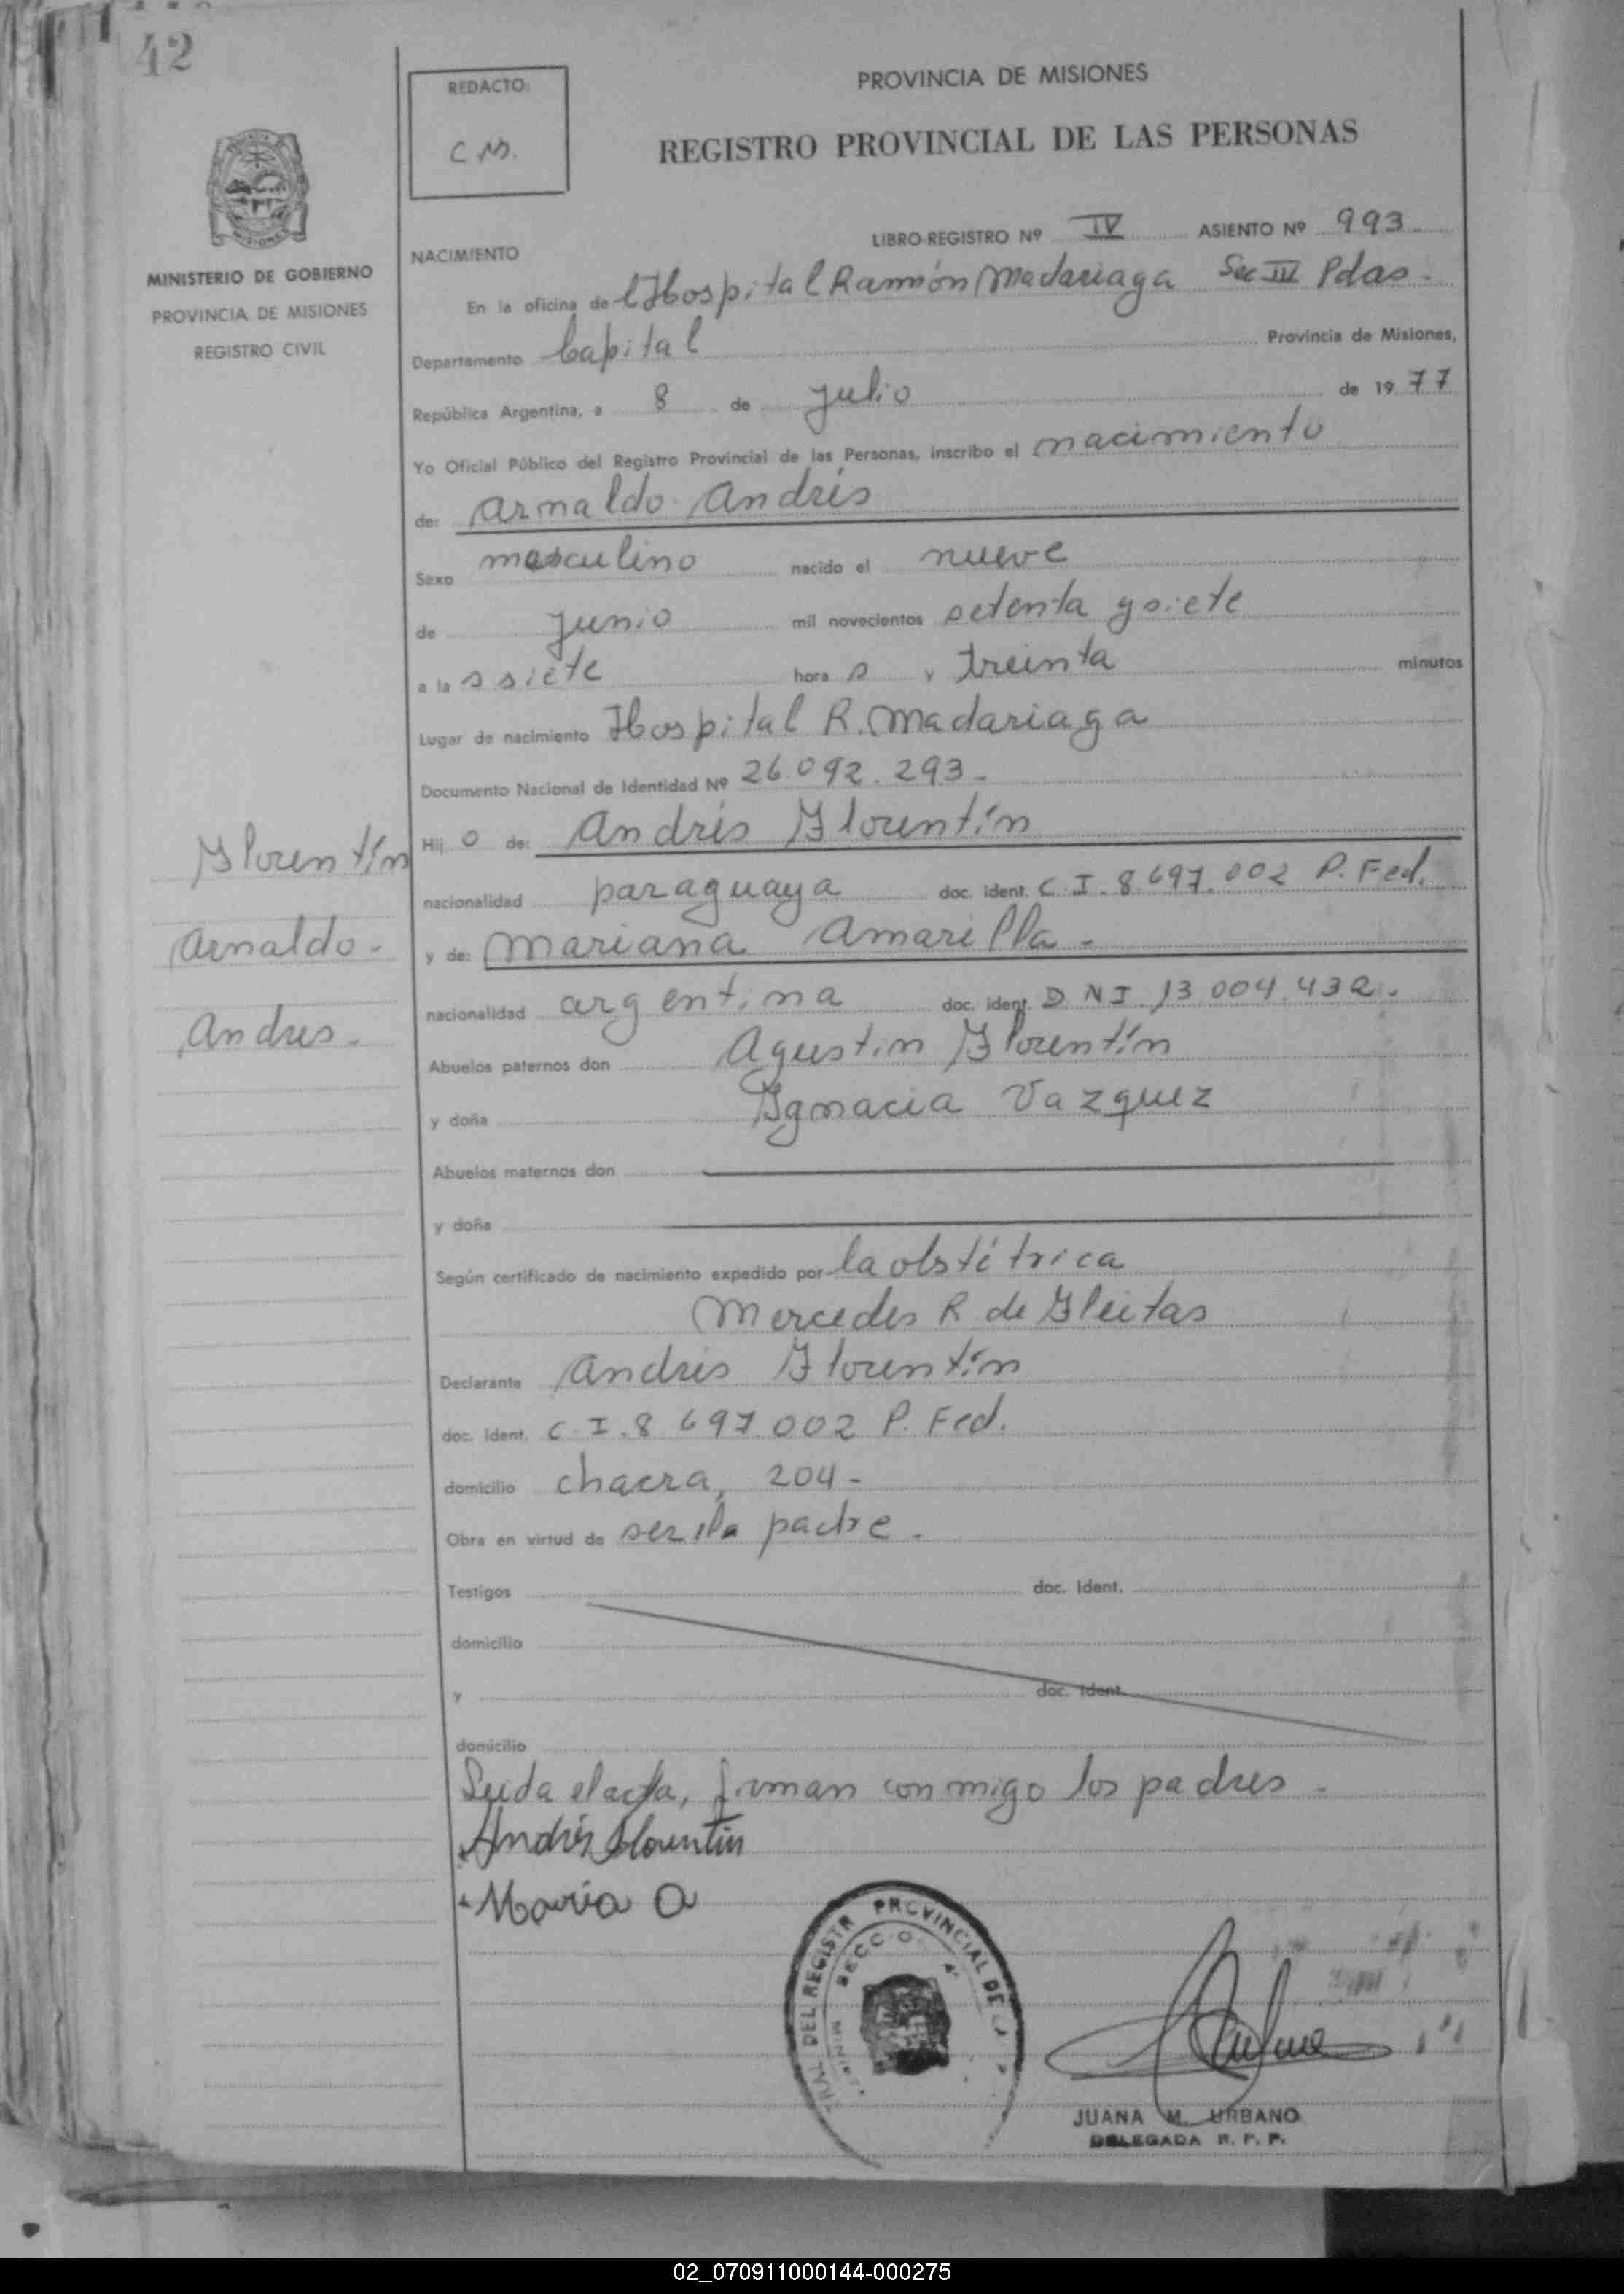 42
REDACTO:
C M.
PROVINCIA DE MISIONES
REGISTRO PROVINCIAL DE LAS PERSONAS
MISIONES
MINISTERIO DE GOBIERNO
PROVINCIA DE MISIONES
REGISTRO CIVIL
LIBRO-REGISTRO Nº IV ASIENTO Nº 993
NACIMIENTO
En la oficina del Hospital Ramón Madariaga Sec IV Pdas-
Departamento Capital Provincia de Misiones,
República Argentina, a 8 de julio de 1977
Yo Oficial Público del Registro Provincial de las Personas, inscribo el nacimiento
de: Arnaldo Andrés
Sexo masculino nacido el nueve
de junio mil novecientos setenta y siete
a la s siete hora s y treinta minutos
Lugar de nacimiento Hospital R. Madariaga
Documento Nacional de Identidad Nº 26.092.293-
Hij o de: Andrés Florentín
nacionalidad paraguaya doc. ident. C.I. 8.697.002 P. Fed.
y de: Mariana Amarilla-
nacionalidad argentina doc. ident. DNI 13.004.432.
Florentín
Arnaldo-
Andres.
Abuelos paternos don Agustin Florentín
y doña Ignacia Vazquez
Abuelos maternos don
y doña
Según certificado de nacimiento expedido por la obstétrica
Mercedes R. de Fleitas
Declarante Andrés Florentín
doc. ident. C.I. 8.697.002 P. Fed.
domicilio chacra, 204-
Obra en virtud de ser el padre.
Testigos doc. ident.
domicilio
y doc. ident.
domicilio
Leida el acta, firman conmigo los padres-
Andrés Florentin
María A
DEL REGISTR PROVINCIAL DE
SECCIO
JUANA M. URBANO
DELEGADA R. P. P.
02_070911000144-000275